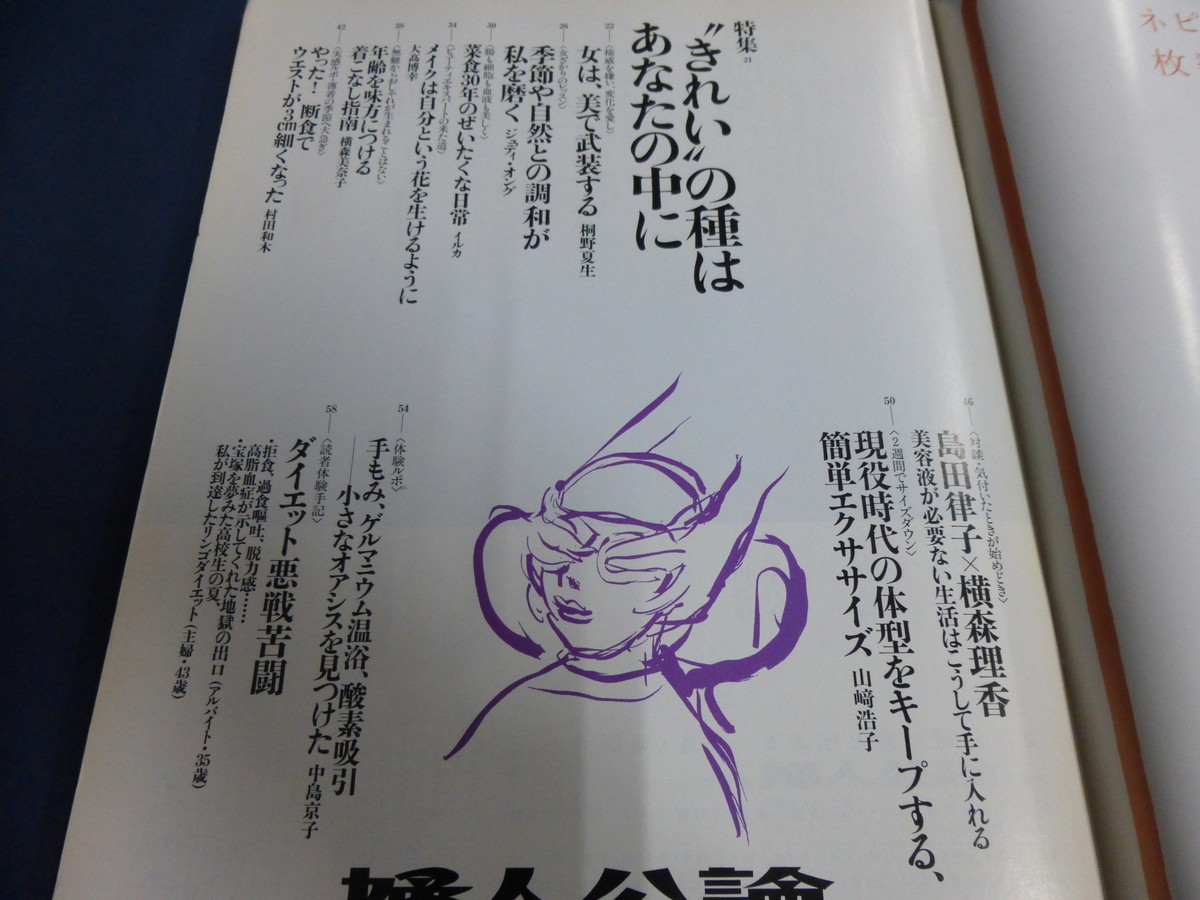 特集 21
“きれい”の種は
あなたの中に
22
〈権威を嫌い、変化を愛し〉
女は、美で武装する 桐野夏生
26
〈女ざかりのレッスン〉
季節や自然との調和が
私を磨く ジュディ・オング
30
〈腸も細胞も血液も美しく〉
菜食30年のぜいたくな日常 イルカ
34
〈ビューティエキスパートの来た道〉
メイクは自分という花を生けるように
大高博幸
38
〈無難からおしゃれが生まれることはない〉
年齢を味方につける
着こなし指南 横森美奈子
42
〈実感ルポ・薄着の季節へ大急ぎ〉
やった! 断食で
ウエストが3cm細くなった 村田和木
46
〈対談・気付いたときが始めどき〉
島田律子×横森理香
美容液が必要ない生活はこうして手に入れる
50
〈2週間でサイズダウン〉
現役時代の体型をキープする、
簡単エクササイズ 山﨑浩子
54
〈体験ルポ〉
手もみ、ゲルマニウム温浴、酸素吸引
――小さなオアシスを見つけた 中島京子
58
〈読者体験手記〉
ダイエット悪戦苦闘
・拒食、過食嘔吐、脱力感……
高脂血症が示してくれた地獄の出口(アルバイト・35歳)
・宝塚を夢みた高校生の夏、
私が到達したリンゴダイエット(主婦・43歳)
婦人公論
ネピ
枚